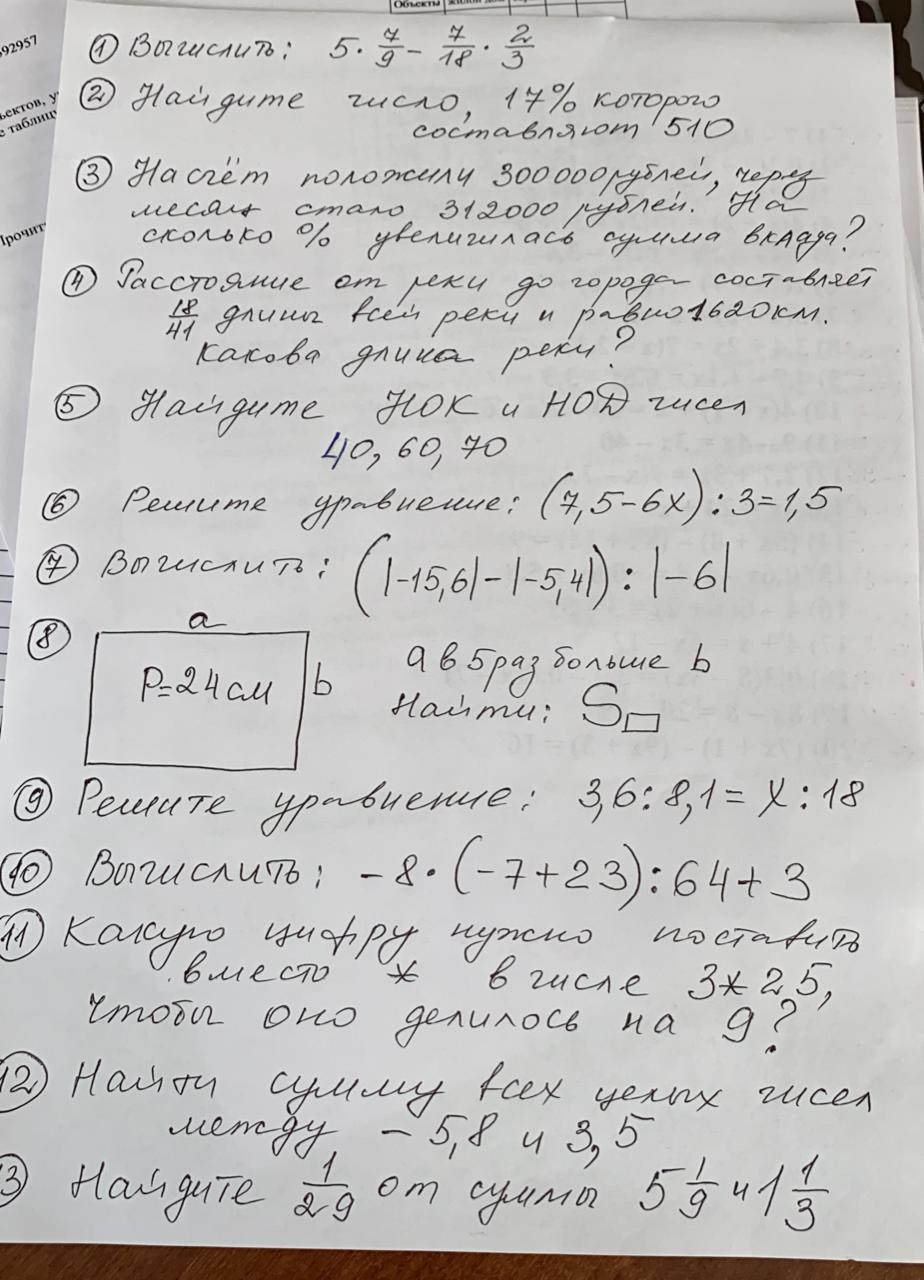 Объекты
жилой дом
92957
ъектов, у
е таблиц
Прочит
① Вычислить: 5 · 7/9 − 7/18 · 2/3
② Найдите число, 17% которого
составляют 510
③ На счёт положили 300000 рублей, через
месяц стало 312000 рублей. На
сколько % увеличилась сумма вклада?
④ Расстояние от реки до города составляет
18/41 длины всей реки и равно 1620 км.
Какова длина реки?
⑤ Найдите НОК и НОД чисел
40, 60, 70
⑥ Решите уравнение: (7,5−6x):3=1,5
⑦ Вычислить: (|−15,6|−|−5,4|) : |−6|
⑧ a
P=24см b
a в 5 раз больше b
Найти: S▭
⑨ Решите уравнение: 3,6:8,1 = x:18
⑩ Вычислить: −8·(−7+23):64+3
⑪ Какую цифру нужно поставить
вместо * в числе 3*25,
чтобы оно делилось на 9?
⑫ Найти сумму всех целых чисел
между −5,8 и 3,5
3 Найдите 1/29 от суммы 5 1/9 и 1 1/3